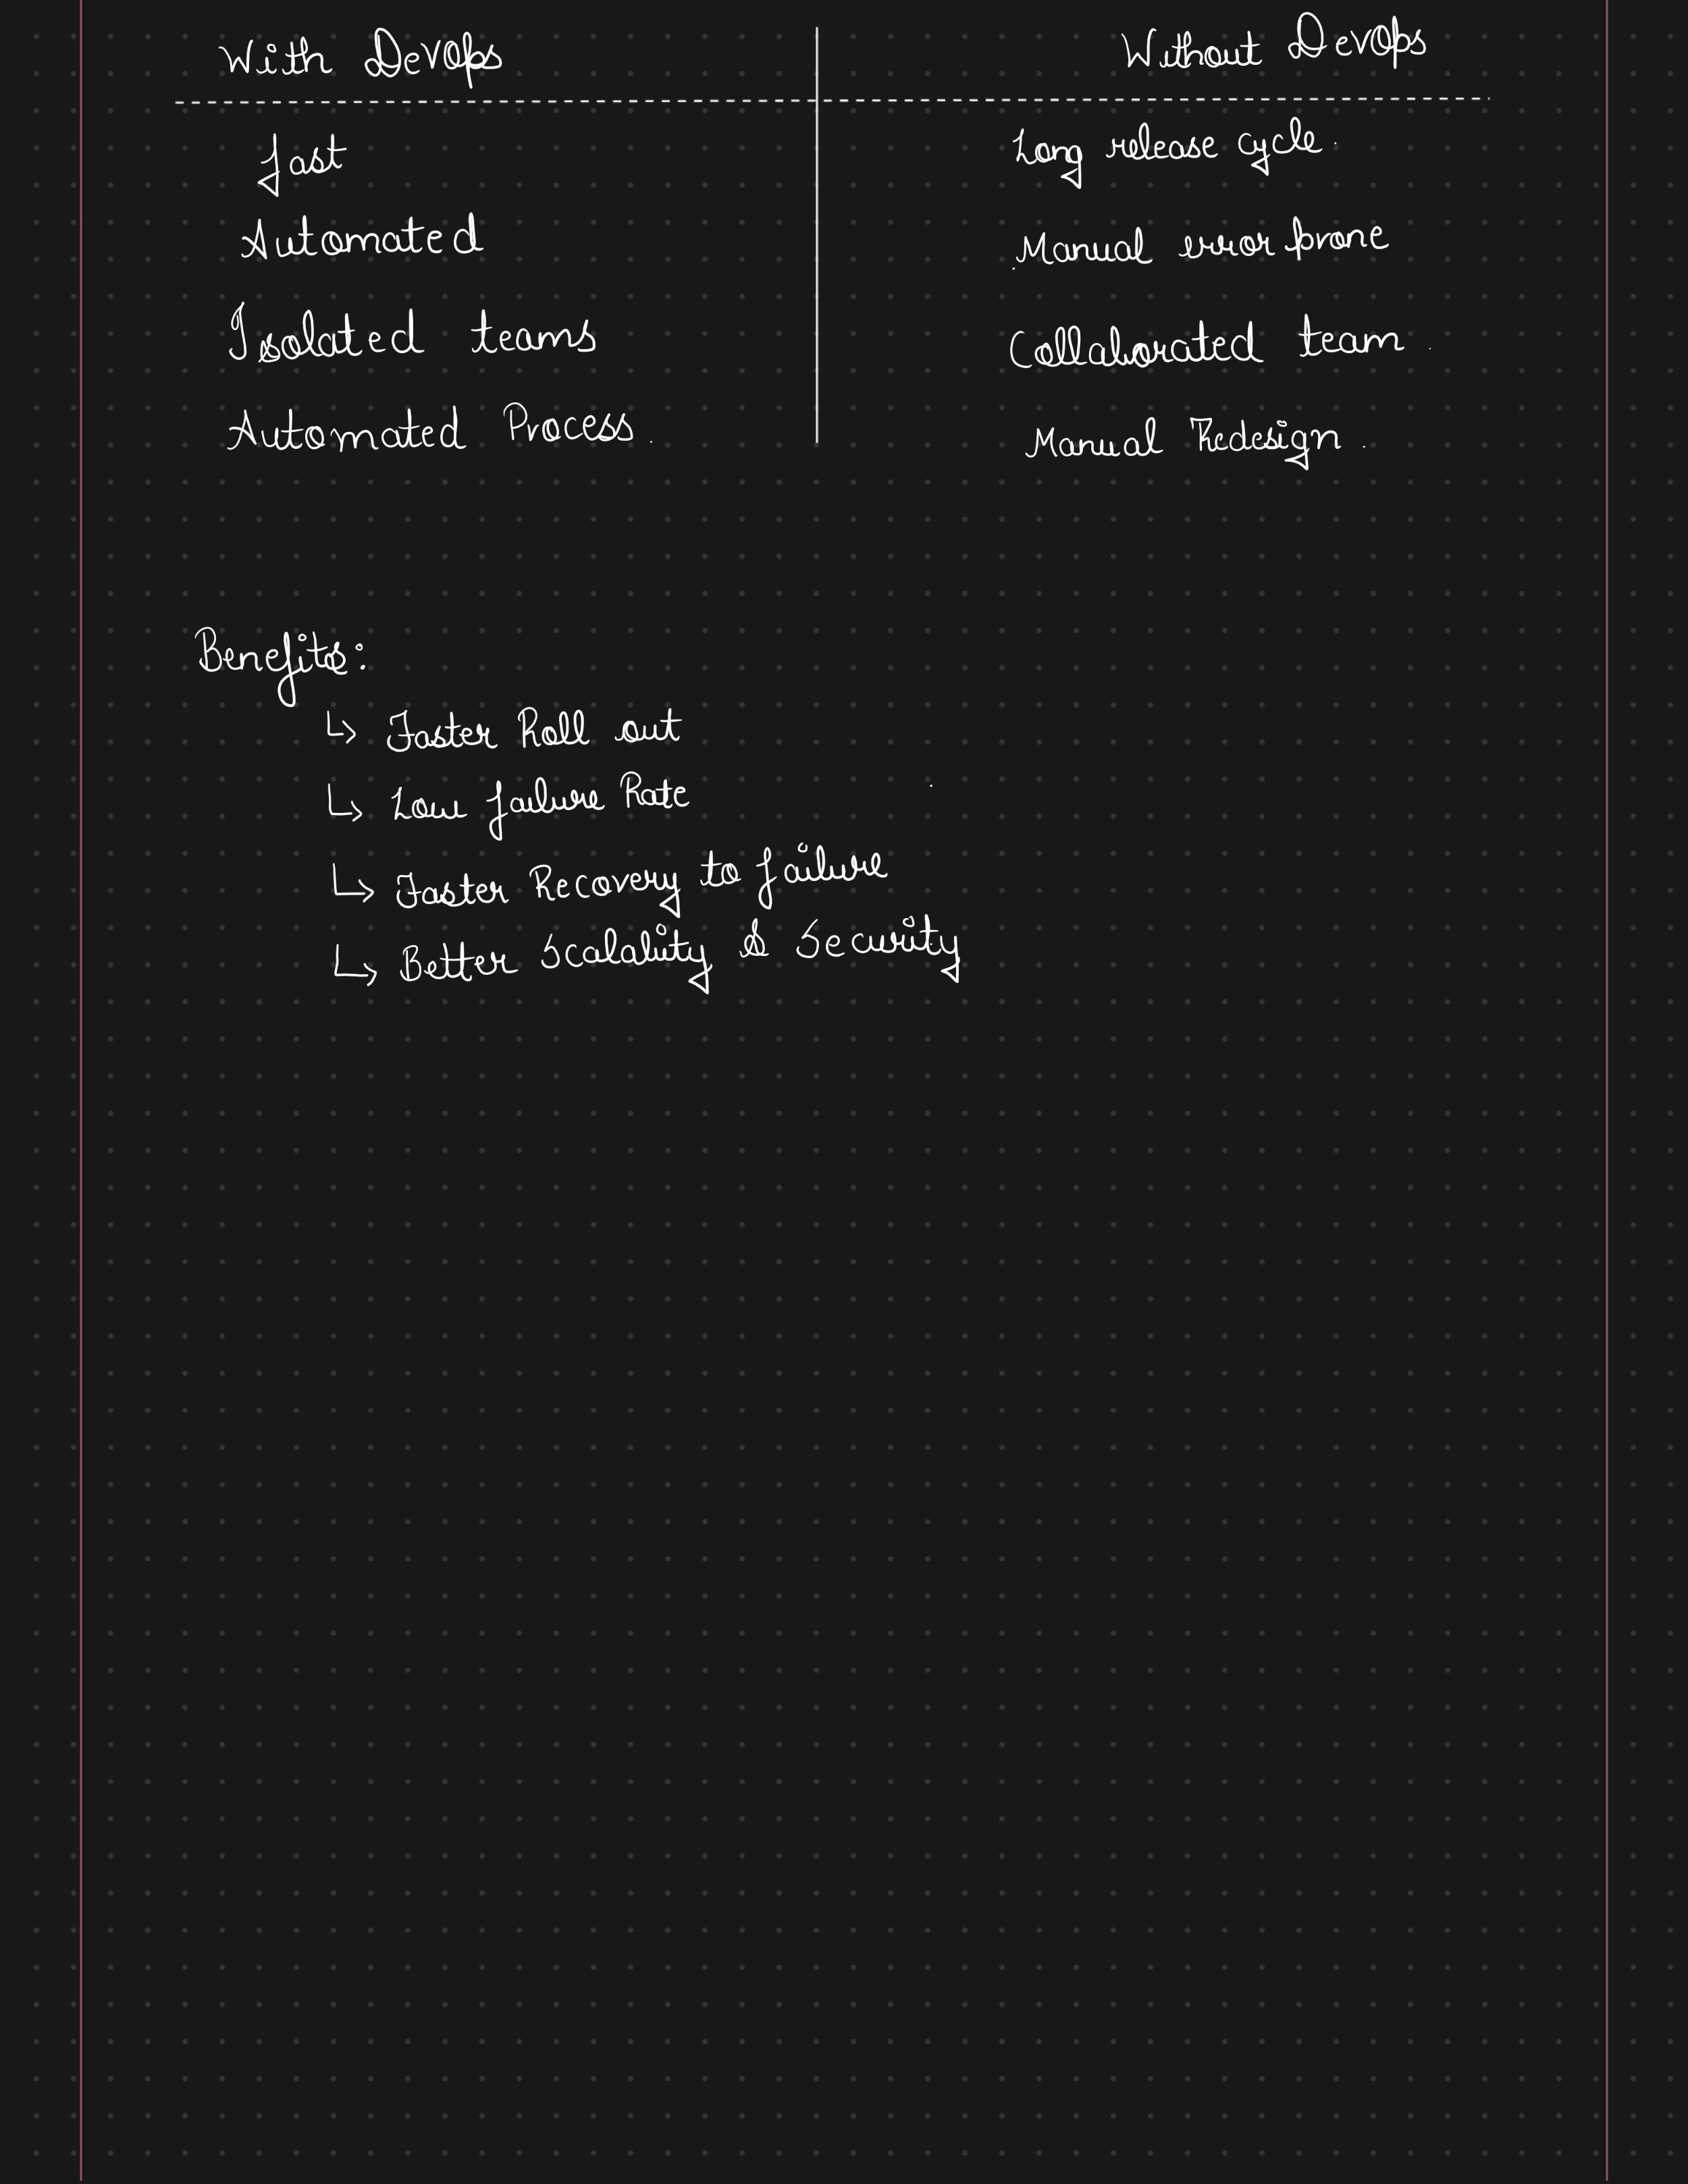 With DevOps Without DevOps
fast Long release cycle.
Automated Manual error prone
Isolated teams Collaborated team.
Automated Process. Manual Redesign.
Benefits:
↳ Faster Roll out
↳ Low failure Rate
↳ Faster Recovery to failure
↳ Better Scalability & Security